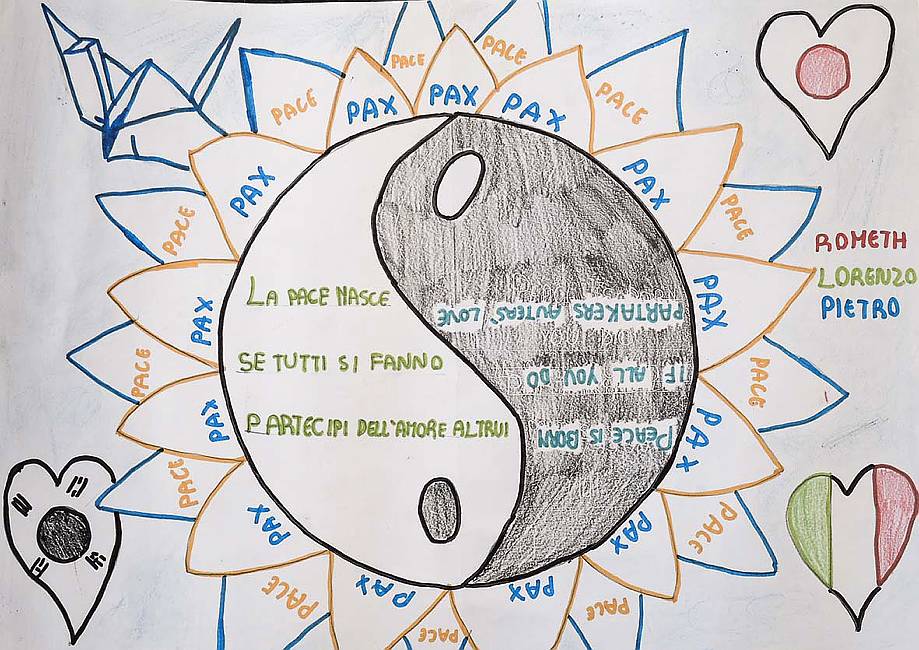 PACE
PACE
PACE
PACE
PAX
PAX
PAX
PAX
PAX
PACE
PAX
PACE
ROMETH
LORENZO
PIETRO
LA PACE NASCE
SE TUTTI SI FANNO
PARTECIPI DELL'AMORE ALTRUI
PEACE IS BORN
IF ALL YOU DO
PARTAKERS AUTERS' LOVE
PAX
PAX
PACE
PACE
PAX
PAX
PACE
PAX
PAX
PACE
PAX
PAX
PACE
PACE
PACE